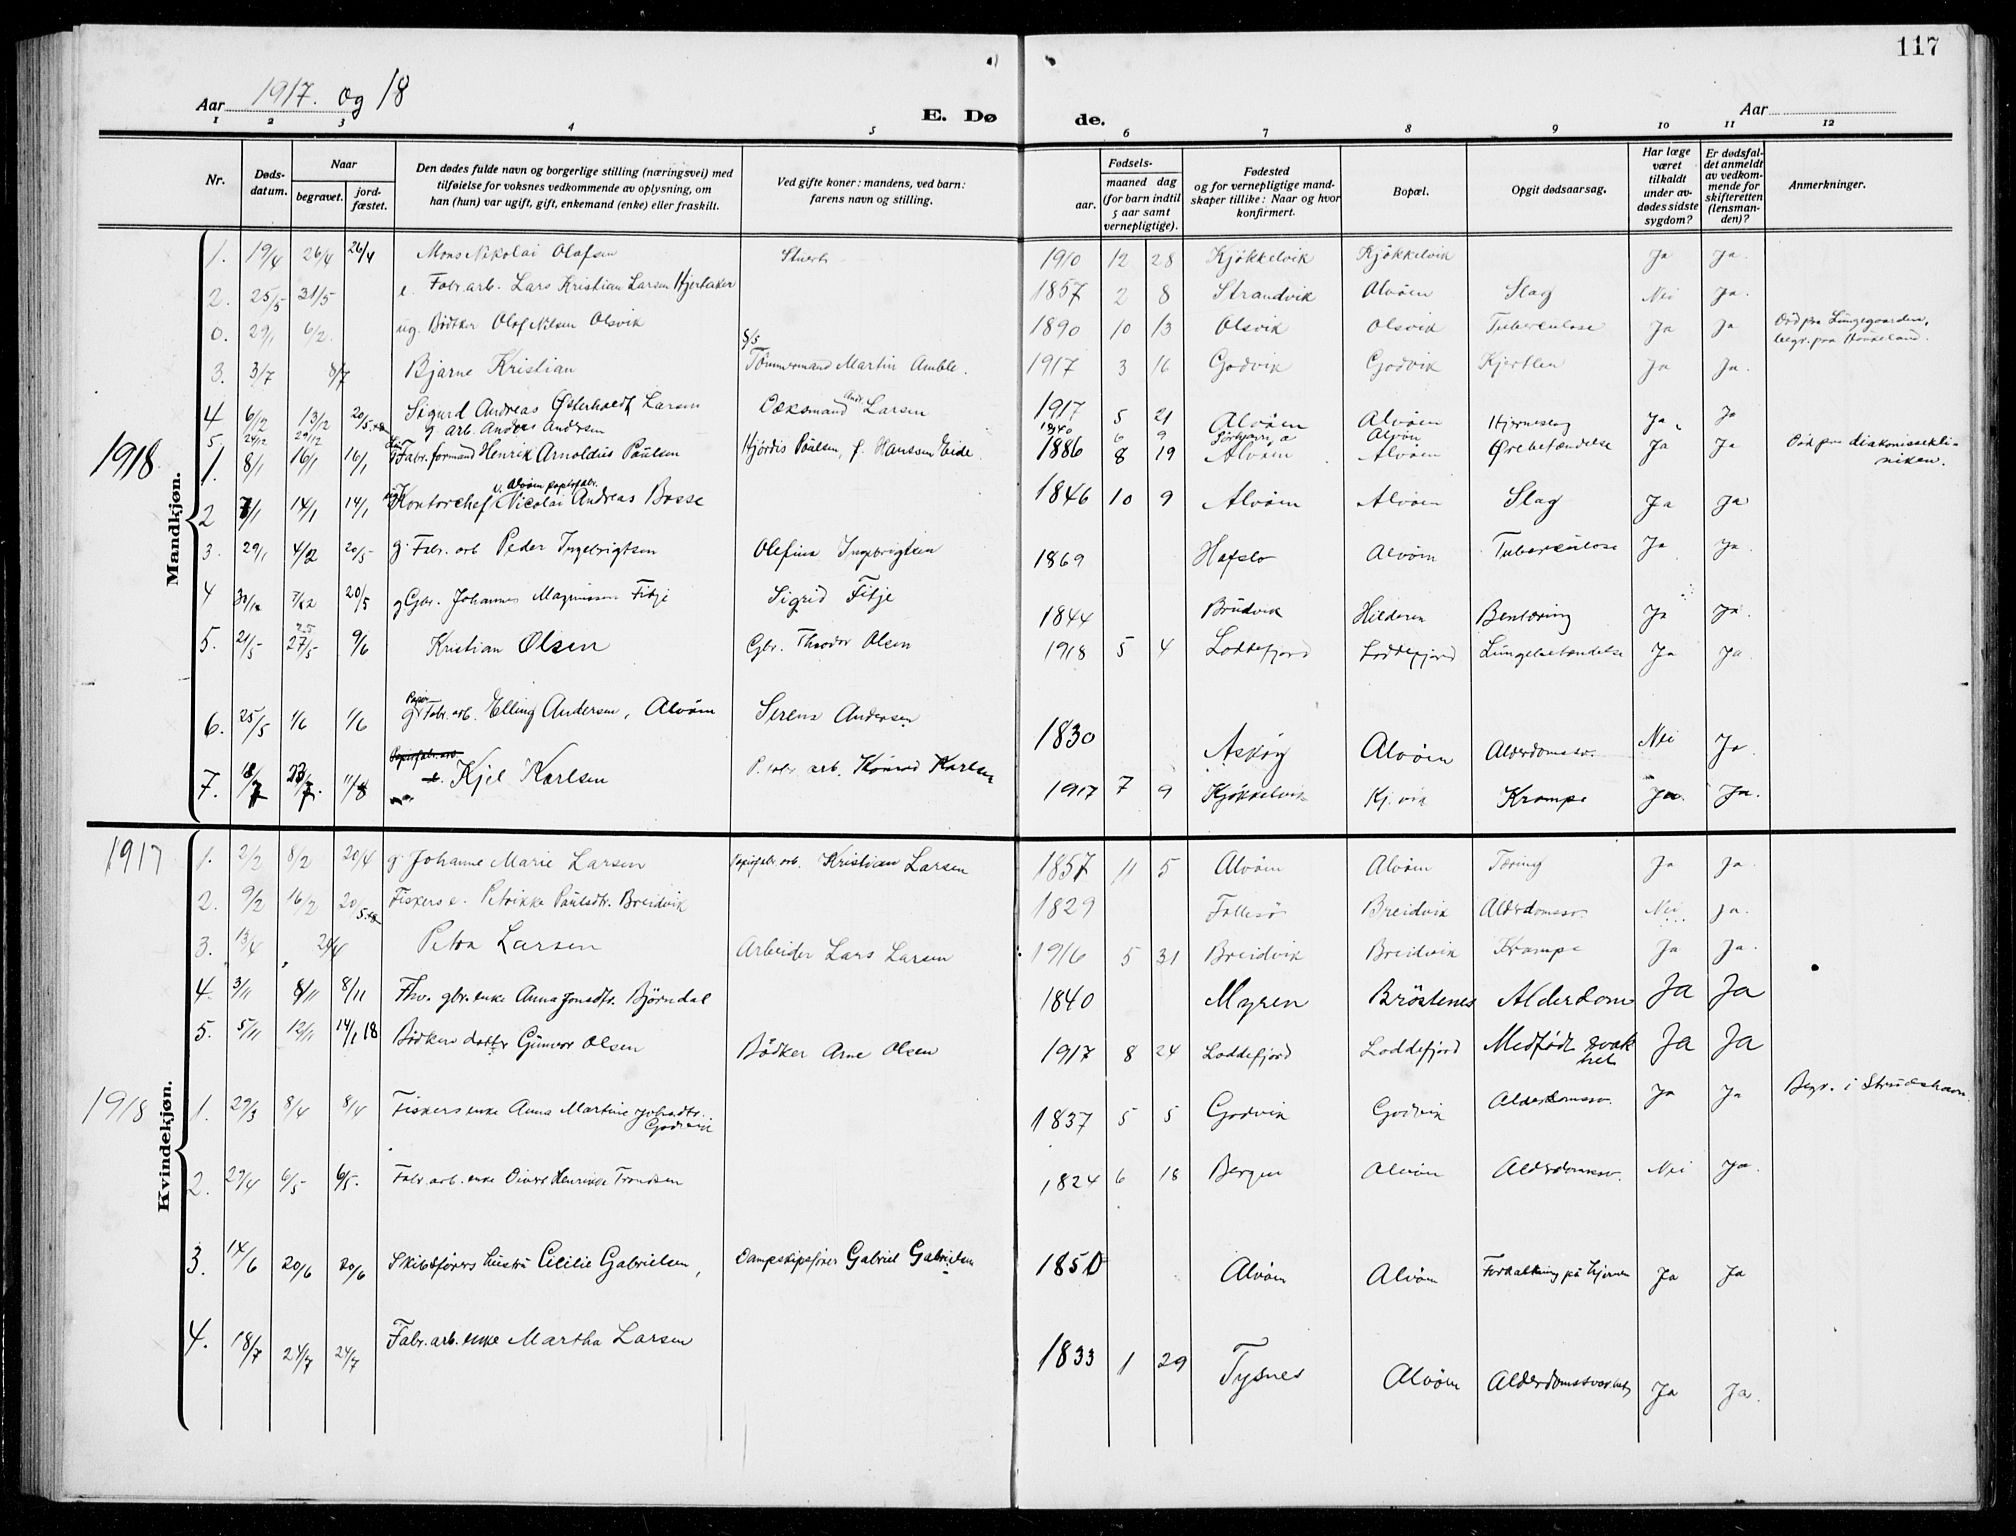 117
Aar 1917. og 18
E. Dø de.
Aar
1 2 3 4 5 6 7 8 9 10 11 12
Nr.
Døds-
datum.
Naar
begravet.
jord-
fæstet.
Den dødes fulde navn og borgerlige stilling (næringsvei) med
tilføielse for voksnes vedkommende av oplysning, om
han (hun) var ugift, gift, enkemand (enke) eller fraskilt.
Ved gifte koner: mandens, ved barn:
farens navn og stilling.
Fødsels-
aar.
maaned dag
(for barn indtil
5 aar samt
vernepligtige).
Fødested
og for vernepligtige mand-
skaper tillike: Naar og hvor
konfirmert.
Bopæl.
Opgit dødsaarsag.
Har læge
været
tilkaldt
under av-
dødes sidste
sygdom?
Er dødsfal-
det anmeldt
av vedkom-
mende for
skifteretten
(lensman-
den)?
Anmerkninger.
Mandkjøn.
1. 19/4 26/4 26/4 Mons Nikolai Olafsen 1910 12 28 Kjøkkelvik Kjøkkelvik Ja Ja.
2. 25/5 31/5 e. Fabr. arb. Lars Kristian Larsen Hjertaker 1857 2 8 Strandvik Alvøen Slag Nei Ja.
0. 29/1 6/2. ug. Bødker Olaf Nilsen Olsvik 1890 10 13 Olsvik Olsvik Tuberculose Ja Ja Død paa Lungegaarden,
begr. paa Haukeland.
3. 3/7 8/7 Bjarne Kristian Tømmermand Martin Amble. 1917 3 16 Godvik Godvik Kjertlen Ja Ja.
4 6/12 13/12 20/5.18 Sigurd Andreas Østerholdt Larsen Oeksmand Andr. Larsen 1917 5 21 Alvøen Alvøen Hjerneslag Ja. Ja
5. 24/12 29/12 g. arb. Anders Andersen 1840 6 9 Alvøn
1918
1. 8/1 16/1 16/1 Fabr. formand Henrik Arnoldus Paulsen Hjørdis Paulsen, f. Hanssen Eide. 1886 8 19 Alvøen Alvøen Ørebetændelse Ja Ja Død paa diakonissekli-
niken.
2 7/1 14/1 14/1 Kontorchef v. Alvøen papirfabr. Nicolai Andreas Bosse 1846 10 9 Alvøen Alvøen Slag Ja Ja
3. 29/1 4/2 20/5 g. Fabr. arb Peder Ingebrigtsen Olefina Ingebrigtsen 1869 Hafslo Alvøen Tuberculose Ja Ja.
4 30/12 7/12 20/5 g Gbr. Johannes Magnussen Fitje Sigrid Fitje 1844 Brudvik Hilderen Bentæring Ja Ja.
5. 21/5 27/5 9/6 Kristian Olsen Gbr. Theodor Olsen 1918 5 4 Loddefjord Loddefjord Lungebetændelse Ja Ja.
6. 25/5 1/6 1/6 g. Papir Fabr. arb. Elling Andersen, Alvøen Serena Andersen 1830 Askøy Alvøen Alderdomssv. Nei Ja.
7. 18/7 23/7. 11/8 Kjel Karlsen P. fabr. arb. Konrad Karlsen 1917 7 9 Kjøkkelvik Kj.vik Krampe Ja. Ja.
Kvindekjøn.
1917
1. 2/2 8/2 20/4 g. Johanne Marie Larsen Papirfabr. arb. Kristian Larsen 1857 11 5 Alvøen Alvøen Tæring Ja Ja.
2. 9/2 16/2 20/5.18 Fiskers e. Petrikke Paulsdtr. Breidvik 1829 Follesø Breidvik Alderdomssv. Nei Ja.
3. 13/4 24/4 Petra Larsen Arbeider Lars Larsen 1916 5 31 Breidvik Breidvik Krampe Ja Ja.
4. 3/11 8/11 8/11 Fhv. gbr. enke Anna Jonsdtr. Bjørndal 1840 Myren Brøstenes Alderdom Ja Ja
5. 5/11 12/11 14/1 18 Bødkers datter Gunvor Olsen Bødker Arne Olsen 1917 8 24 Loddefjord Loddefjord Medfødt svak
het Ja Ja
1918
1. 29/3 8/4 8/4 Fiskers enke Anna Martine Johsdtr.
Godvik 1837 5 5 Godvik Godvik Alderdomssv. Ja Ja Begr. i Strudshavn.
2. 29/4 6/5 6/5. Fabr. arb. enke Henrikke Trondsen 1824 6 18 Bergen Alvøen Alderdomssv. Nei Ja.
3. 14/6 20/6 20/6 Skibsførers hustru Cicilie Gabrielsen, Dampskipsfører Gabriel Gabrielsen 1850 Alvøen Alvøen Forkalkning på hjernen Ja Ja
4. 18/7 24/7 24/7 Fabr. arb. enke Martha Larsen 1833 1 29 Tysnes Alvøen Alderdomssvakhet Ja Ja.